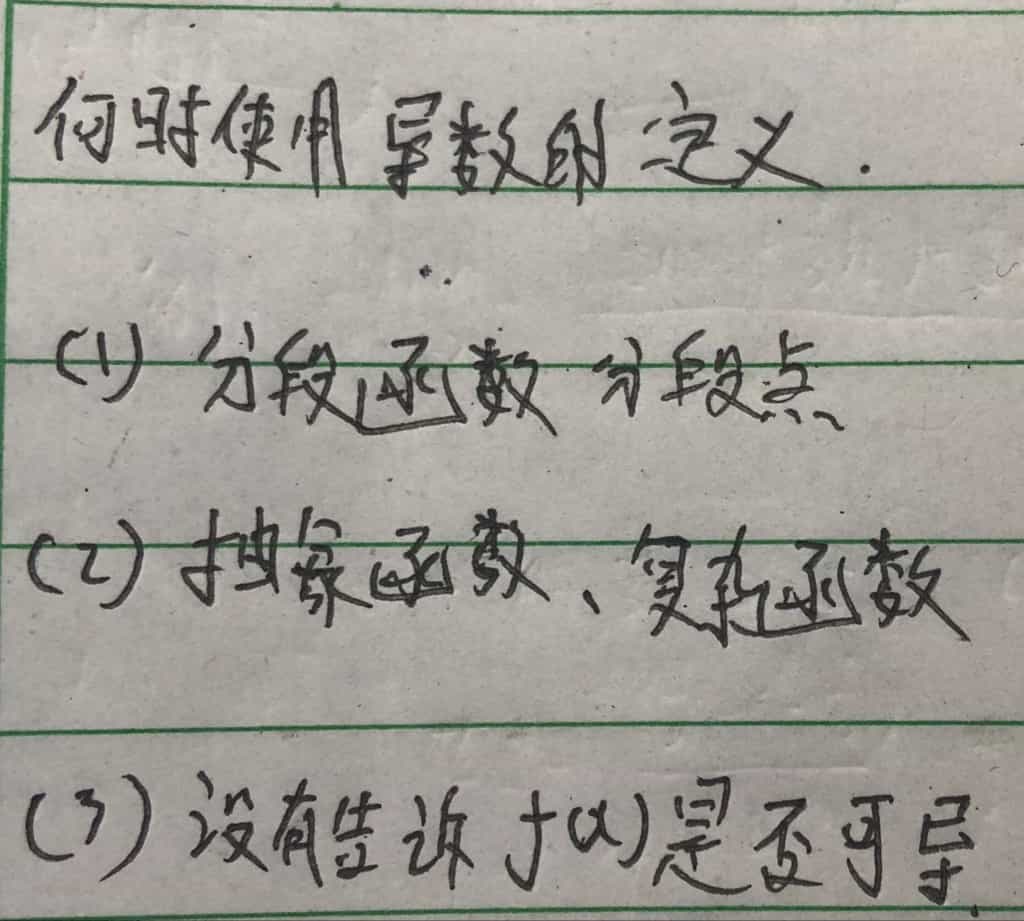 何时使用导数的定义.
(1) 分段函数 分段点
(2) 抽象函数、复杂函数
(3) 没有告诉 f(x) 是否可导